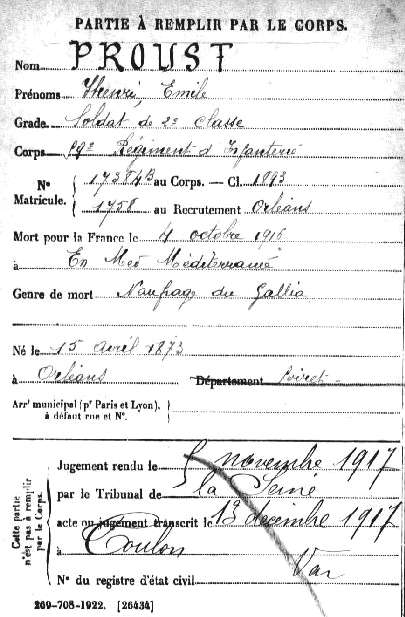 PARTIE À REMPLIR PAR LE CORPS.
Nom PROUST
Prénoms Henri, Emile
Grade Soldat de 2e classe
Corps Régiment d'Infanterie
Nº Matricule. { 17384B au Corps. — Cl. 1893
1758 au Recrutement Orléans
Mort pour la France le 4 octobre 1916
à En Mer Méditerranée
Genre de mort Naufrage du Gallia
Né le 15 avril 1873
à Orléans Département Loiret
Arrᵗ municipal (pʳ Paris et Lyon),
à défaut rue et Nº.
Cette partie n'est pas à remplir par le Corps.
Jugement rendu le 5 novembre 1917
par le Tribunal de la Seine
acte ou jugement transcrit le 13 décembre 1917
à Toulon
Var
Nº du registre d'état civil
269-708-1922. [26434]